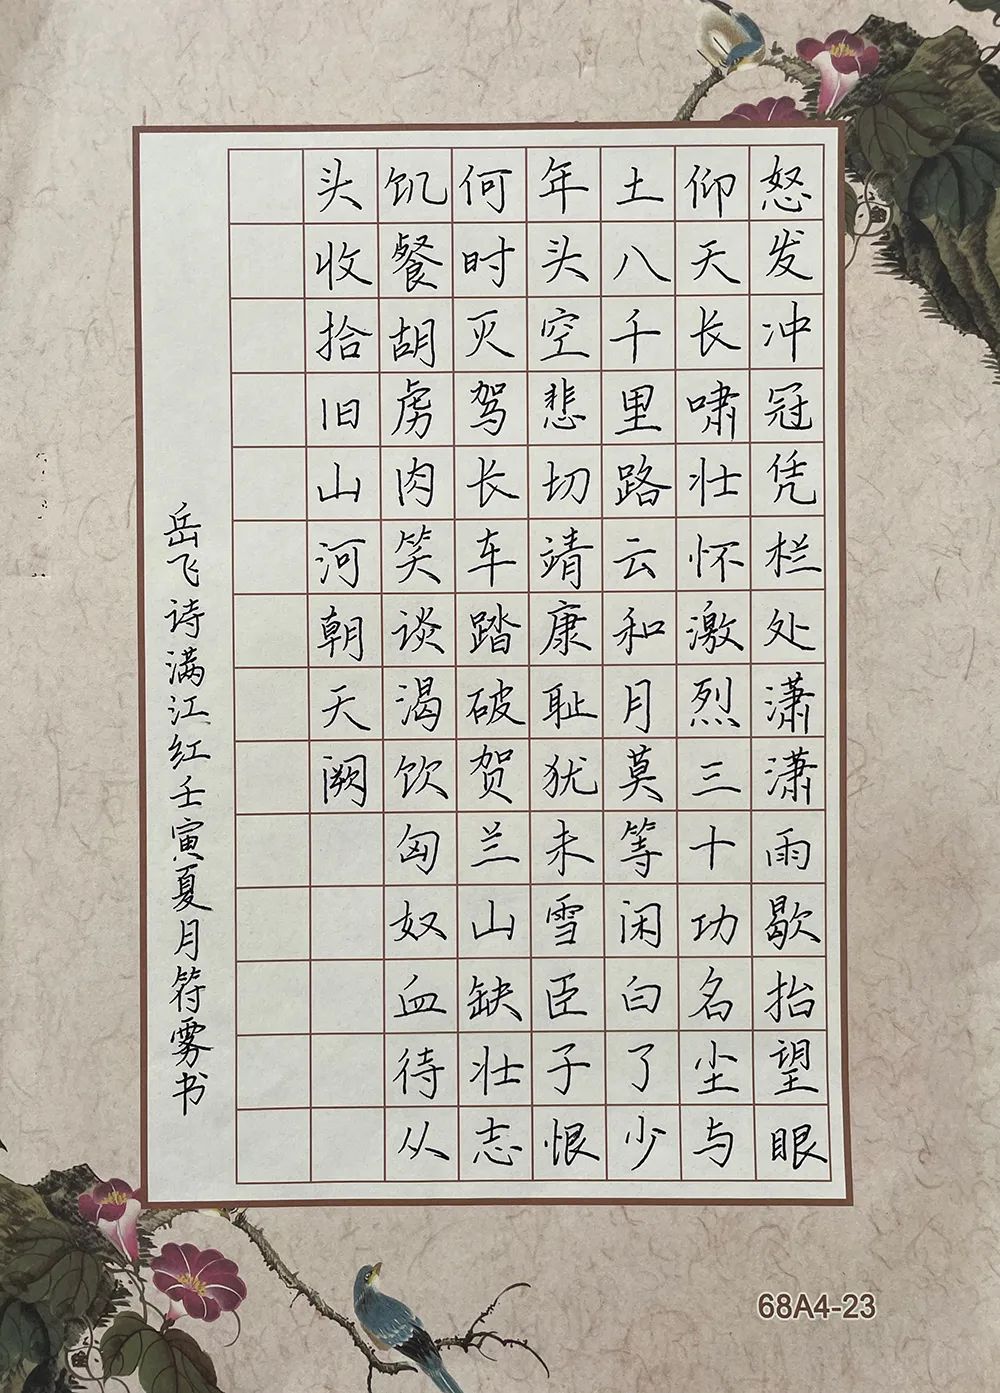 怒发冲冠凭栏处潇潇雨歇抬望眼
仰天长啸壮怀激烈三十功名尘与
土八千里路云和月莫等闲白了少
年头空悲切靖康耻犹未雪臣子恨
何时灭驾长车踏破贺兰山缺壮志
饥餐胡虏肉笑谈渴饮匈奴血待从
头收拾旧山河朝天阙
岳飞诗满江红壬寅夏月符雾书
68A4-23